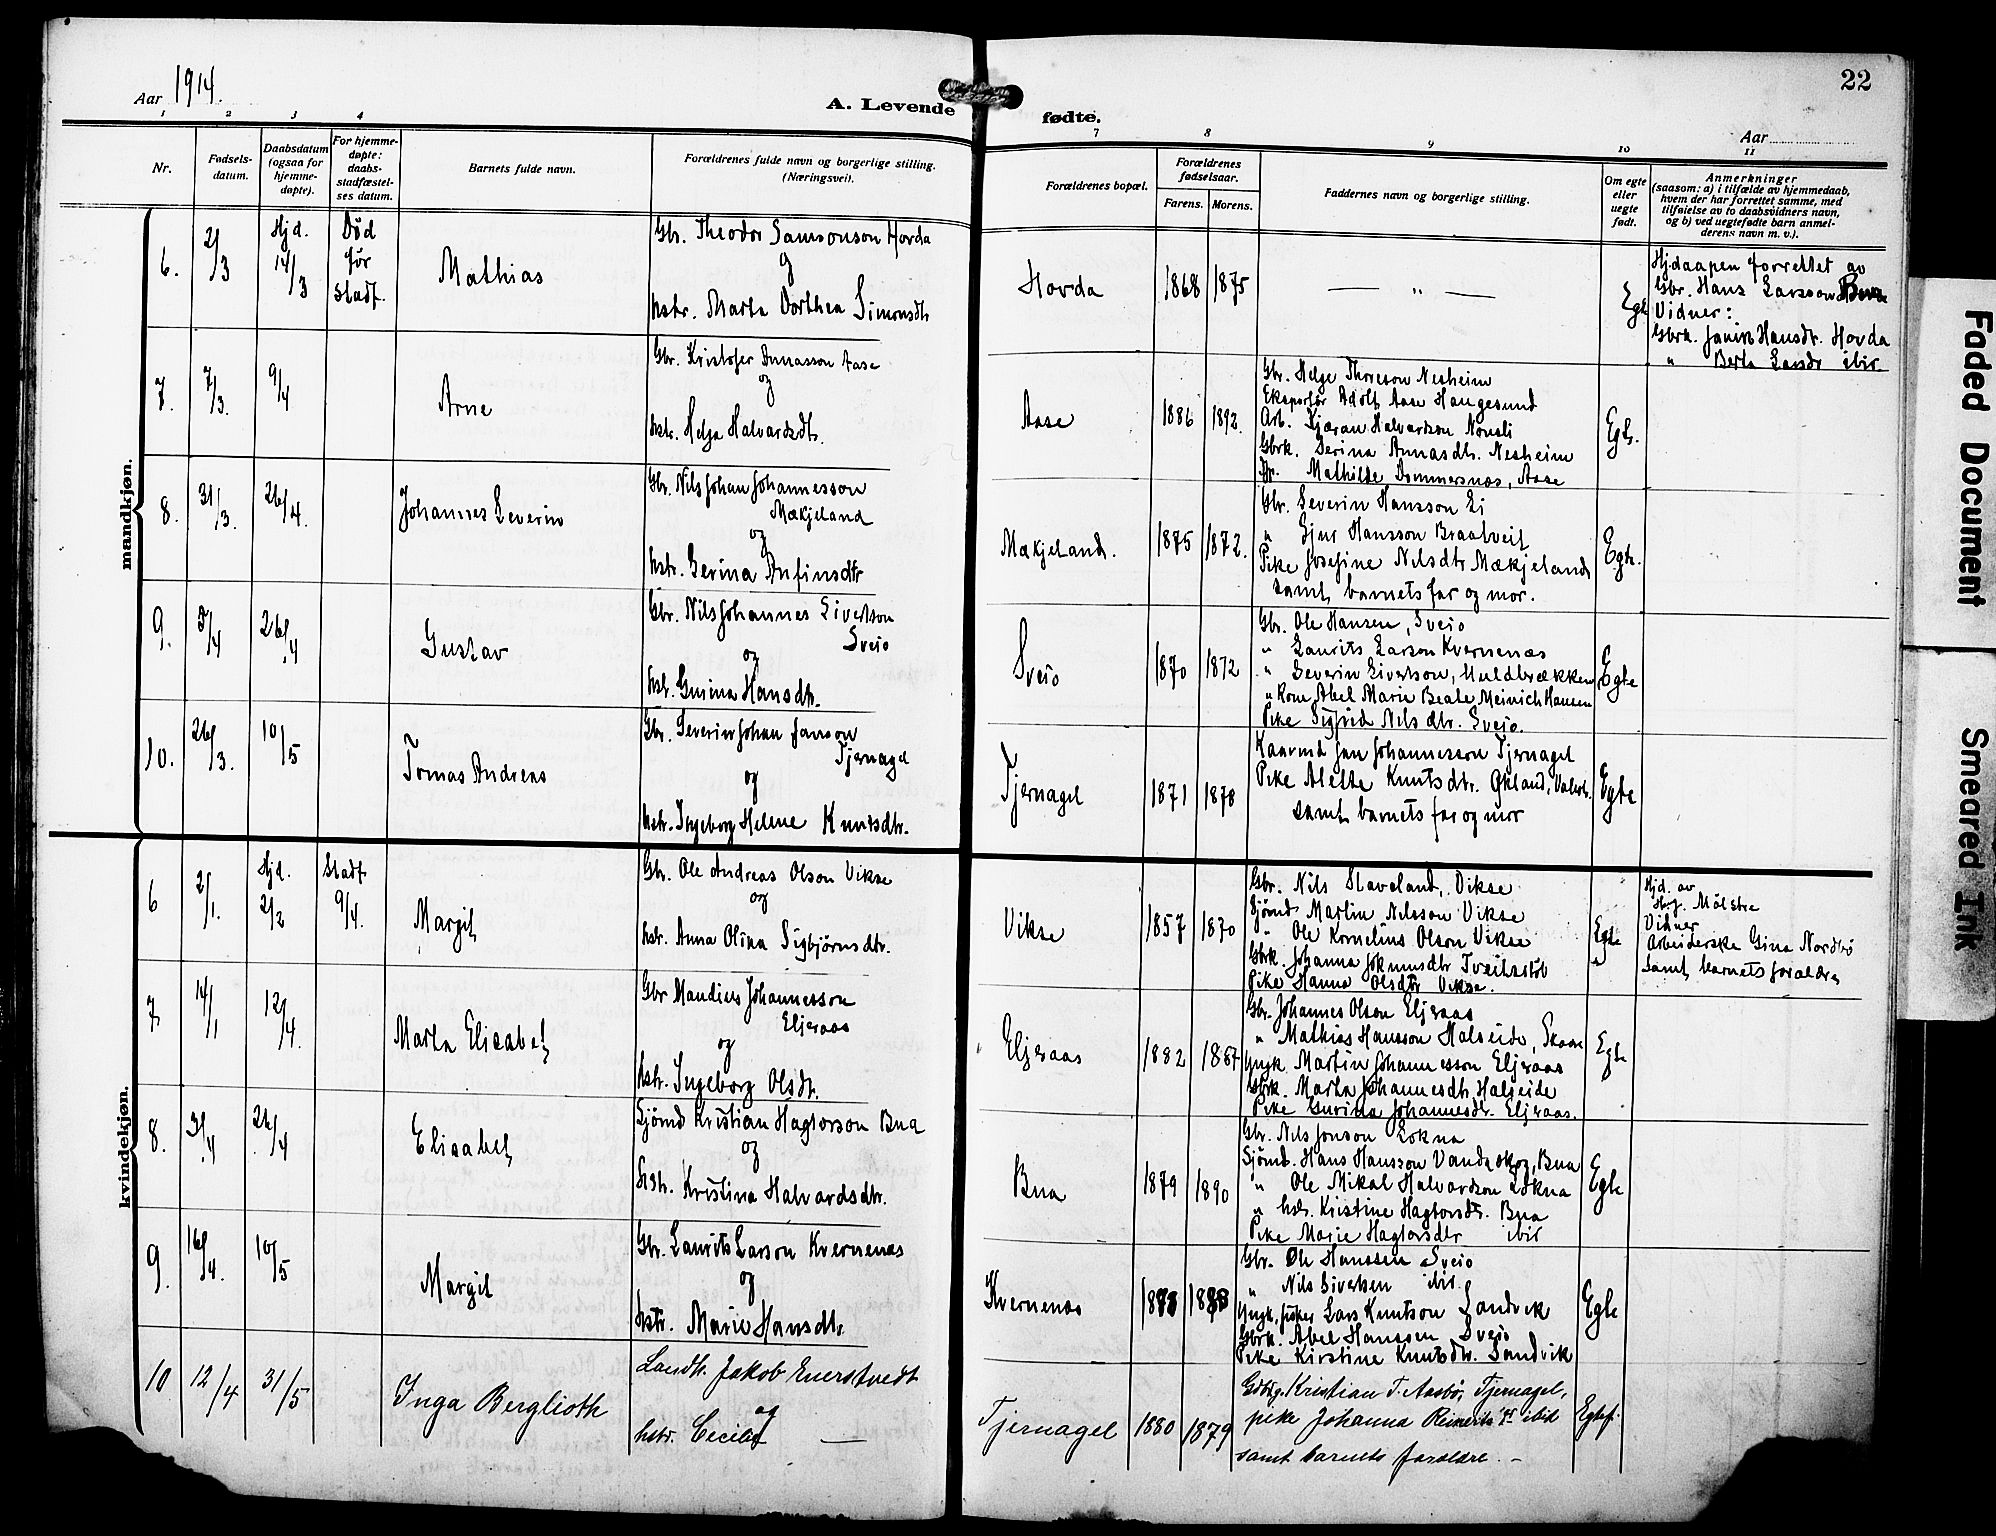 Aar 1914.
A. Levende
fødte.
22
Aar
1 2 3 4
7 8 9 10 11
Nr.
Fødsels-
datum.
Daabsdatum
(ogsaa for
hjemme-
døpte).
For hjemme-
døpte:
daabs-
stadfæstel-
ses datum.
Barnets fulde navn.
Forældrenes fulde navn og borgerlige stilling.
(Næringsvei).
Forældrenes bopæl.
Forældrenes
fødselsaar.
Farens. Morens.
Faddernes navn og borgerlige stilling.
Om egte
eller
uegte
født.
Anmerkninger
(saasom: a) i tilfælde av hjemmedaab,
hvem der har forrettet samme, med
tilføielse av to daabsvidners navn,
og b) ved uegtefødte barn anmel-
derens navn m. v.).
mandkjøn.
6. 2/3 Hjd. 14/3 Død før stadf.
Mathias
Gbr. Theodor Samsonson Hovda
og
hstr. Marta Dorthea Simonsdtr.
Hovda 1868 1875
— " —
Egte
Hjdaapen forrettet av
Gbr. Hans Larsson
Vidner:
Gbrk. Hansdtr. Hovda
" Berta Larsdr ibid.
7. 7/3. 9/4
Arne
Gbr. Kristofer Aase
og
hstr. Helga Halvardsdtr.
Aase 1886 1892.
Gbr. Helge Thoreson Nesheim
Eksportør Adolf Aase Haugesund
Arb. Kjæran Halvardson
Gbrk. Serina Nesheim
Mathilde Dommersnæs, Aase
Egte.
8. 31/3. 26/4.
Johannes Severin
Gbr. Nils Johan Johannesson
Mækjeland
og
hstr. Serina Anfinsdtr
Mækjeland. 1875 1872.
Gbr. Severin Hansson Li
" Sjur Hansson Braatveit
Pike Josefine Nilsdtr Mækjeland
samt barnets far og mor.
Egte.
9. 5/4 26/4
Gustav
Gbr. Nils Johannes Sivertson
Sveio
og
hstr. Gurina Hansdtr.
Sveio 1870 1872
Gbr. Ole Hansen, Sveio
" Laurits Larson Kvernenæs
" Severin Sivertson, Uuldbrækken
" Kone Abel Marie Beate Meinich Hansen
Pike Sigfrid Nilsdtr. Sveio.
Egte
10. 26/3. 10/5
Tomas Andreas
Gbr. Severin Johan Janson
Tjernagel
og
hstr. Ingeborg Helene Knutsdtr.
Tjernagel 1871 1878
Kaarmd Jan Johannesson Tjernagel
Pike Alette Knutsdtr. Økland,
samt barnets far og mor
Egte
kvindekjøn.
6 2/1. Hjd. 2/2 Stadf 9/4.
Margit
Gbr. Ole Andreas Olson Vikse
og
hstr. Anna Olina Sigbjörnsdtr.
Vikse 1857 1870
Gbr. Nils Staveland, Vikse
Sjömd Martin Nilsson Vikse
" Ole Kornelius Olson Vikse
Gbrk. Johanna Tveitastöl
Pike Hanna Olsdtr Vikse.
Egte
Hjd. av
Mölstre
Vidner
Arbeiderske Gina Nordbö
samt barnets foræld.
7. 14/1 12/4.
Marta Elisabet
Gbr Mandius Johannesson
Eljeraas
og
hstr. Ingeborg Olsdt.
Eljeraas 1882 1887
Gbr. Johannes Olson Eljeraas
" Mathias Hansson Halseide, Skaar
Ungk. Martin Johannesson Eljeraas
Gbrk. Marta Johannesdtr. Halseide
Pike Gurina Johannesdtr. Eljeraas.
Egte
8. 3/4 26/4
Elisabet
Sjömd Kristian Hagtorson Bua
og
hstr. Kristina Halvardsdtr.
Bua 1879 1890
Gbr. Nils Jonson Lokna
Sjömd. Hans Hansson Vandaskog, Bua
" Ole Mikal Halvardson Lokna
" hstr. Kristine Hagtorsdtr. Bua
Pike Marie Hagtorsdtr ibid
Egte
9. 16/4. 10/5
Margit
Gbr. Laurits Larson Kvernenæs
og
hstr. Marie Hansdtr.
Kvernenæs
Gbr. Ole Hanssen Sveio
" Nils Sivertsen ibid.
Ungk. fisker Lars Knutson Sandvik
Gbrk. Abel Hanssen Sveio
Pike Kirstine Knutsdtr. Sandvik
Egte
10 12/4 31/5
Inga Berglioth
Landh. Jakob Enerstvedt
og
hstr. Cecilie —
Tjernagel 1880 1879
Gdbg. Kristian T. Aasbö, Tjernagel,
pike Johanna ibid
samt barnets forældre. -
Egtef.
Faded Document
Smeared Ink